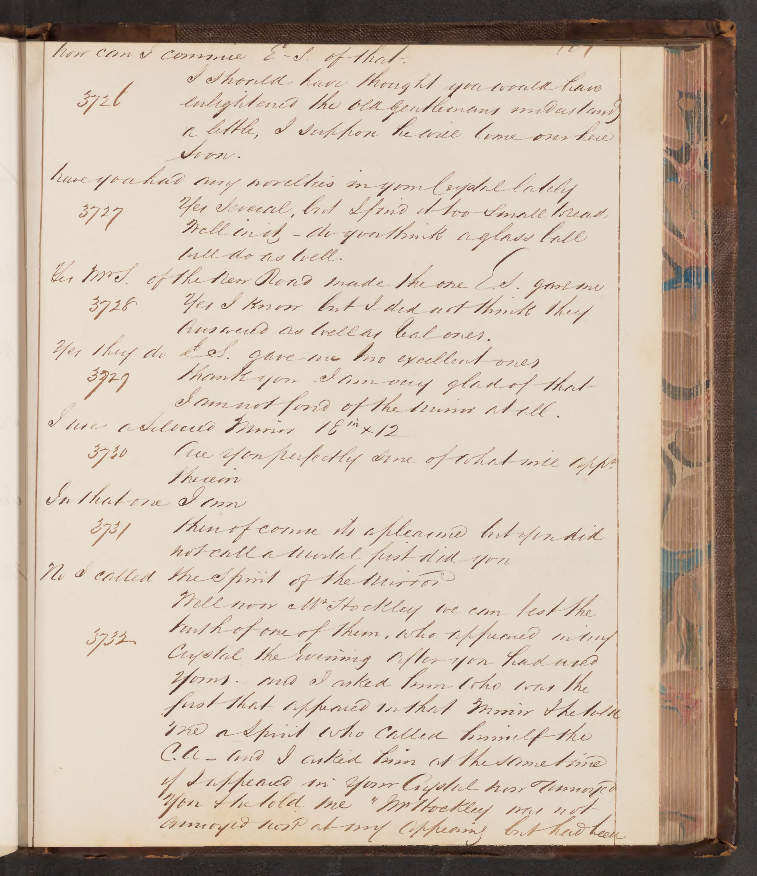 how can I convince E.S. of that.
I should have thought you would have
3726 enlightened the old gentlemans understand^g
a little, I suppose he will come over here
soon.
have you had any novelties in your Crystal lately
3727 Yes several, but I find it too small
Well in it – do you think a glass ball
will do as well.
Yes Mr S. of the New Road made the one E S. gave me
3728 Yes I know but I did not think they
answered as well as oval ones.
Yes they do E.S. gave me two excellent ones
3729 thank you I am very glad of that
I am not fond of the mirror at all.
I use a silvered Mirror 18 in x 12
3730 Are you perfectly sure of what will app^r
therein
In that one I am
3731 then of course its a pleasure but you did
not call a mortal first did you
No I called the Spirit of the Mirror
Well now Mr Hockley we can test the
3732 truth of one of them, who appeared in my
Crystal the Evening after you had used
Yours. and I asked him who was the
first that appeared in that Mirror & he told
me a Spirit who called himself the
C.A – and I asked him at the same time
if I appeared in your Crystal now & annoyed
You & he told me "Mr Hockley was not
annoyed now at my appearing but had been